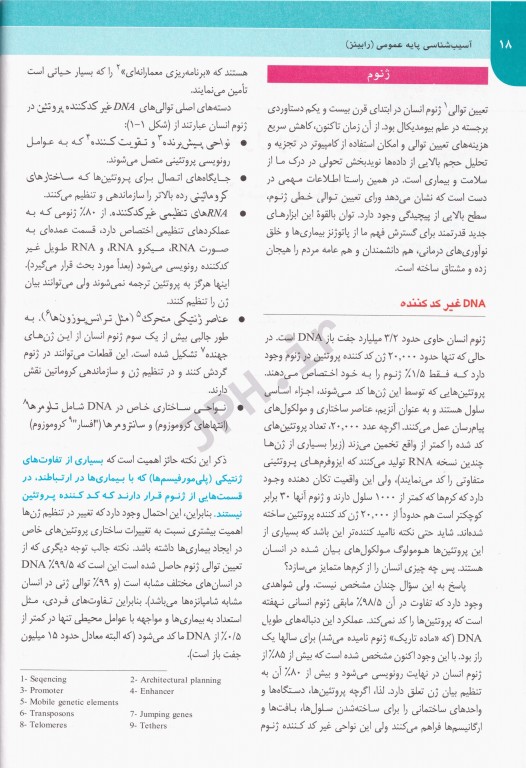 ۱۸
آسیب‌شناسی پایه عمومی (رابینز)
ژنوم
تعیین توالی۱ ژنوم انسان در ابتدای قرن بیست و یکم دستاوردی
برجسته در علم بیومدیکال بود. از آن زمان تاکنون، کاهش سریع
هزینه‌های تعیین توالی و امکان استفاده از کامپیوتر در تجزیه و
تحلیل حجم بالایی از داده‌ها نویدبخش تحولی در درک ما از
سلامت و بیماری است. در همین راستا اطلاعات مهمی در
دست است که نشان می‌دهد ورای تعیین توالی خطی ژنوم،
سطح بالایی از پیچیدگی وجود دارد. توان بالقوهٔ این ابزارهای
جدید قدرتمند برای گسترش فهم ما از پاتوژنز بیماری‌ها و خلق
نوآوری‌های درمانی، هم دانشمندان و هم عامه مردم را هیجان
زده و مشتاق ساخته است.
DNA غیر کد کننده
ژنوم انسان حاوی حدود ۳/۲ میلیارد جفت باز DNA است. در
حالی که تنها حدود ۲۰,۰۰۰ ژن کد کننده پروتئین در ژنوم وجود
دارد کـه فـقط ۱/۵٪ ژنوم را به خود اختصاص می‌دهند.
پروتئین‌هایی که توسط این ژن‌ها کد می‌شوند، اجزاء اساسی
سلول هستند و به عنوان آنزیم، عناصر ساختاری و مولکول‌های
پیام‌رسان عمل می‌کنند. اگرچه عدد ۲۰,۰۰۰، تعداد پروتئین‌های
کد شده را کمتر از واقع تخمین می‌زند (زیرا بسیاری از ژن‌ها
چندین نسخه RNA تولید می‌کنند که ایزوفرم‌های پـروتئینی
متفاوتی را کد می‌نمایند)، ولی این واقعیت تکان دهنده وجـود
دارد که کرم‌ها که کمتر از ۱۰۰۰ سلول دارند و ژنوم آنها ۳۰ برابر
کوچکتر است هم حدوداً از ۲۰,۰۰۰ ژن کد کننده پروتئین ساخته
شده‌اند. شاید حتی نکته ناامید کننده‌تر این باشد که بسیاری از
این پروتئین‌ها هـومولوگ مـولکول‌های بـیان شـده در انسـان
هستند. پس چه چیزی انسان را از کرم‌ها متمایز می‌سازد؟
پاسخ به این سؤال چندان مشخص نیست. ولی شواهدی
وجود دارد که تفاوت در آن ۹۸/۵٪ مابقی ژنوم انسانی نـهفته
است که پروتئین‌ها را کد نمی‌کند. عملکرد این دنباله‌های طویل
DNA (که «ماده تاریک» ژنوم نامیده می‌شد) برای سالها یک
راز بود. با این وجود اکنون مشخص شده است که بیش از ۸۵٪ از
ژنوم انسان در نهایت رونویسی می‌شود و بیش از ۸۰٪ آن به
تنظیم بیان ژن تعلق دارد. لذا، اگرچه پروتئین‌ها، دستگاه‌ها و
واحدهای ساختمانی را برای ساخته‌شدن سلول‌ها، بافت‌ها و
ارگانیسم‌ها فراهم می‌کنند ولی این نواحی غیر کد کننده ژنوم
هستند که «برنامه‌ریزی معمارانه‌ای»۲ را که بسیار حیاتی است
تأمین می‌نمایند.
دسته‌های اصلی توالی‌های DNA غیر کدکننده پروتئین در
ژنوم انسان عبارتند از (شکل ۱-۱):
● نواحی پیش‌برنده۳ و تـقویت کـننده۴ کـه به عـوامل
رونویسی پروتئینی متصل می‌شوند.
● جـایگاه‌های اتـصال بـرای پـروتئین‌ها کـه سـاختارهای
کروماتینی رده بالاتر را سازماندهی و تنظیم می‌کنند.
● RNAهای تنظیمی غیرکدکننده. از ۸۰٪ ژنومی که به
عملکردهای تنظیمی اختصاص دارد، قسمت عمده‌ای به
صـورت RNA، مـیکرو RNA، و RNA طـویل غـیر
کدکننده رونویسی می‌شود (بعداً مورد بحث قرار می‌گیرد).
اینها هرگز به پروتئین ترجمه نمی‌شوند ولی می‌توانند بیان
ژن را تنظیم کنند.
● عناصر ژنتیکی متحرک۵ (مثل ترانس‌پوزون‌ها۶). به
طور جالبی بیش از یک سوم ژنوم انسان از ایـن ژن‌هـای
جهنده۷ تشکیل شده است. این قطعات می‌توانند در ژنوم
گردش کنند و در تنظیم ژن و سازماندهی کروماتین نقش
دارند.
● نـواحـی سـاختاری خـاص در DNA شـامل تـلومرها۸
(انتهاهای کروموزوم) و سانترومرها ("افسار"۹ کروموزوم)
ذکر این نکته حائز اهمیت است که بسیاری از تفاوت‌های
ژنتیکی (پلی‌مورفیسم‌ها) که با بیماری‌ها در ارتـباطند، در
قسمت‌هایی از ژنـوم قـرار دارنـد کـه کـد کـننده پـروتئین
نیستند. بنابراین، این احتمال وجود دارد که تغییر در تنظیم ژن‌ها
اهمیت بیشتری نسبت به تغییرات ساختاری پروتئین‌های خاص
در ایجاد بیماری‌ها داشته باشد. نکته جالب توجه دیگری که از
تعیین توالی ژنوم حاصل شده است این است که ۹۹/۵٪ DNA
در انسان‌های مختلف مشابه است (و ۹۹٪ توالی ژنی در انسان
مشابه شامپانزه‌ها می‌باشد). بنابراین تـفاوت‌های فـردی، مـثل
استعداد به بیماری‌ها و مواجهه با عوامل محیطی تنها در کمتر از
۰/۵٪ از DNA ما کد می‌شود (که البته معادل حدود ۱۵ میلیون
جفت باز است).
1- Seqencing 2- Architectural planning
3- Promoter 4- Enhancer
5- Mobile genetic elements
6- Transposons 7- Jumping genes
8- Telomeres 9- Tethers
JPH.ir